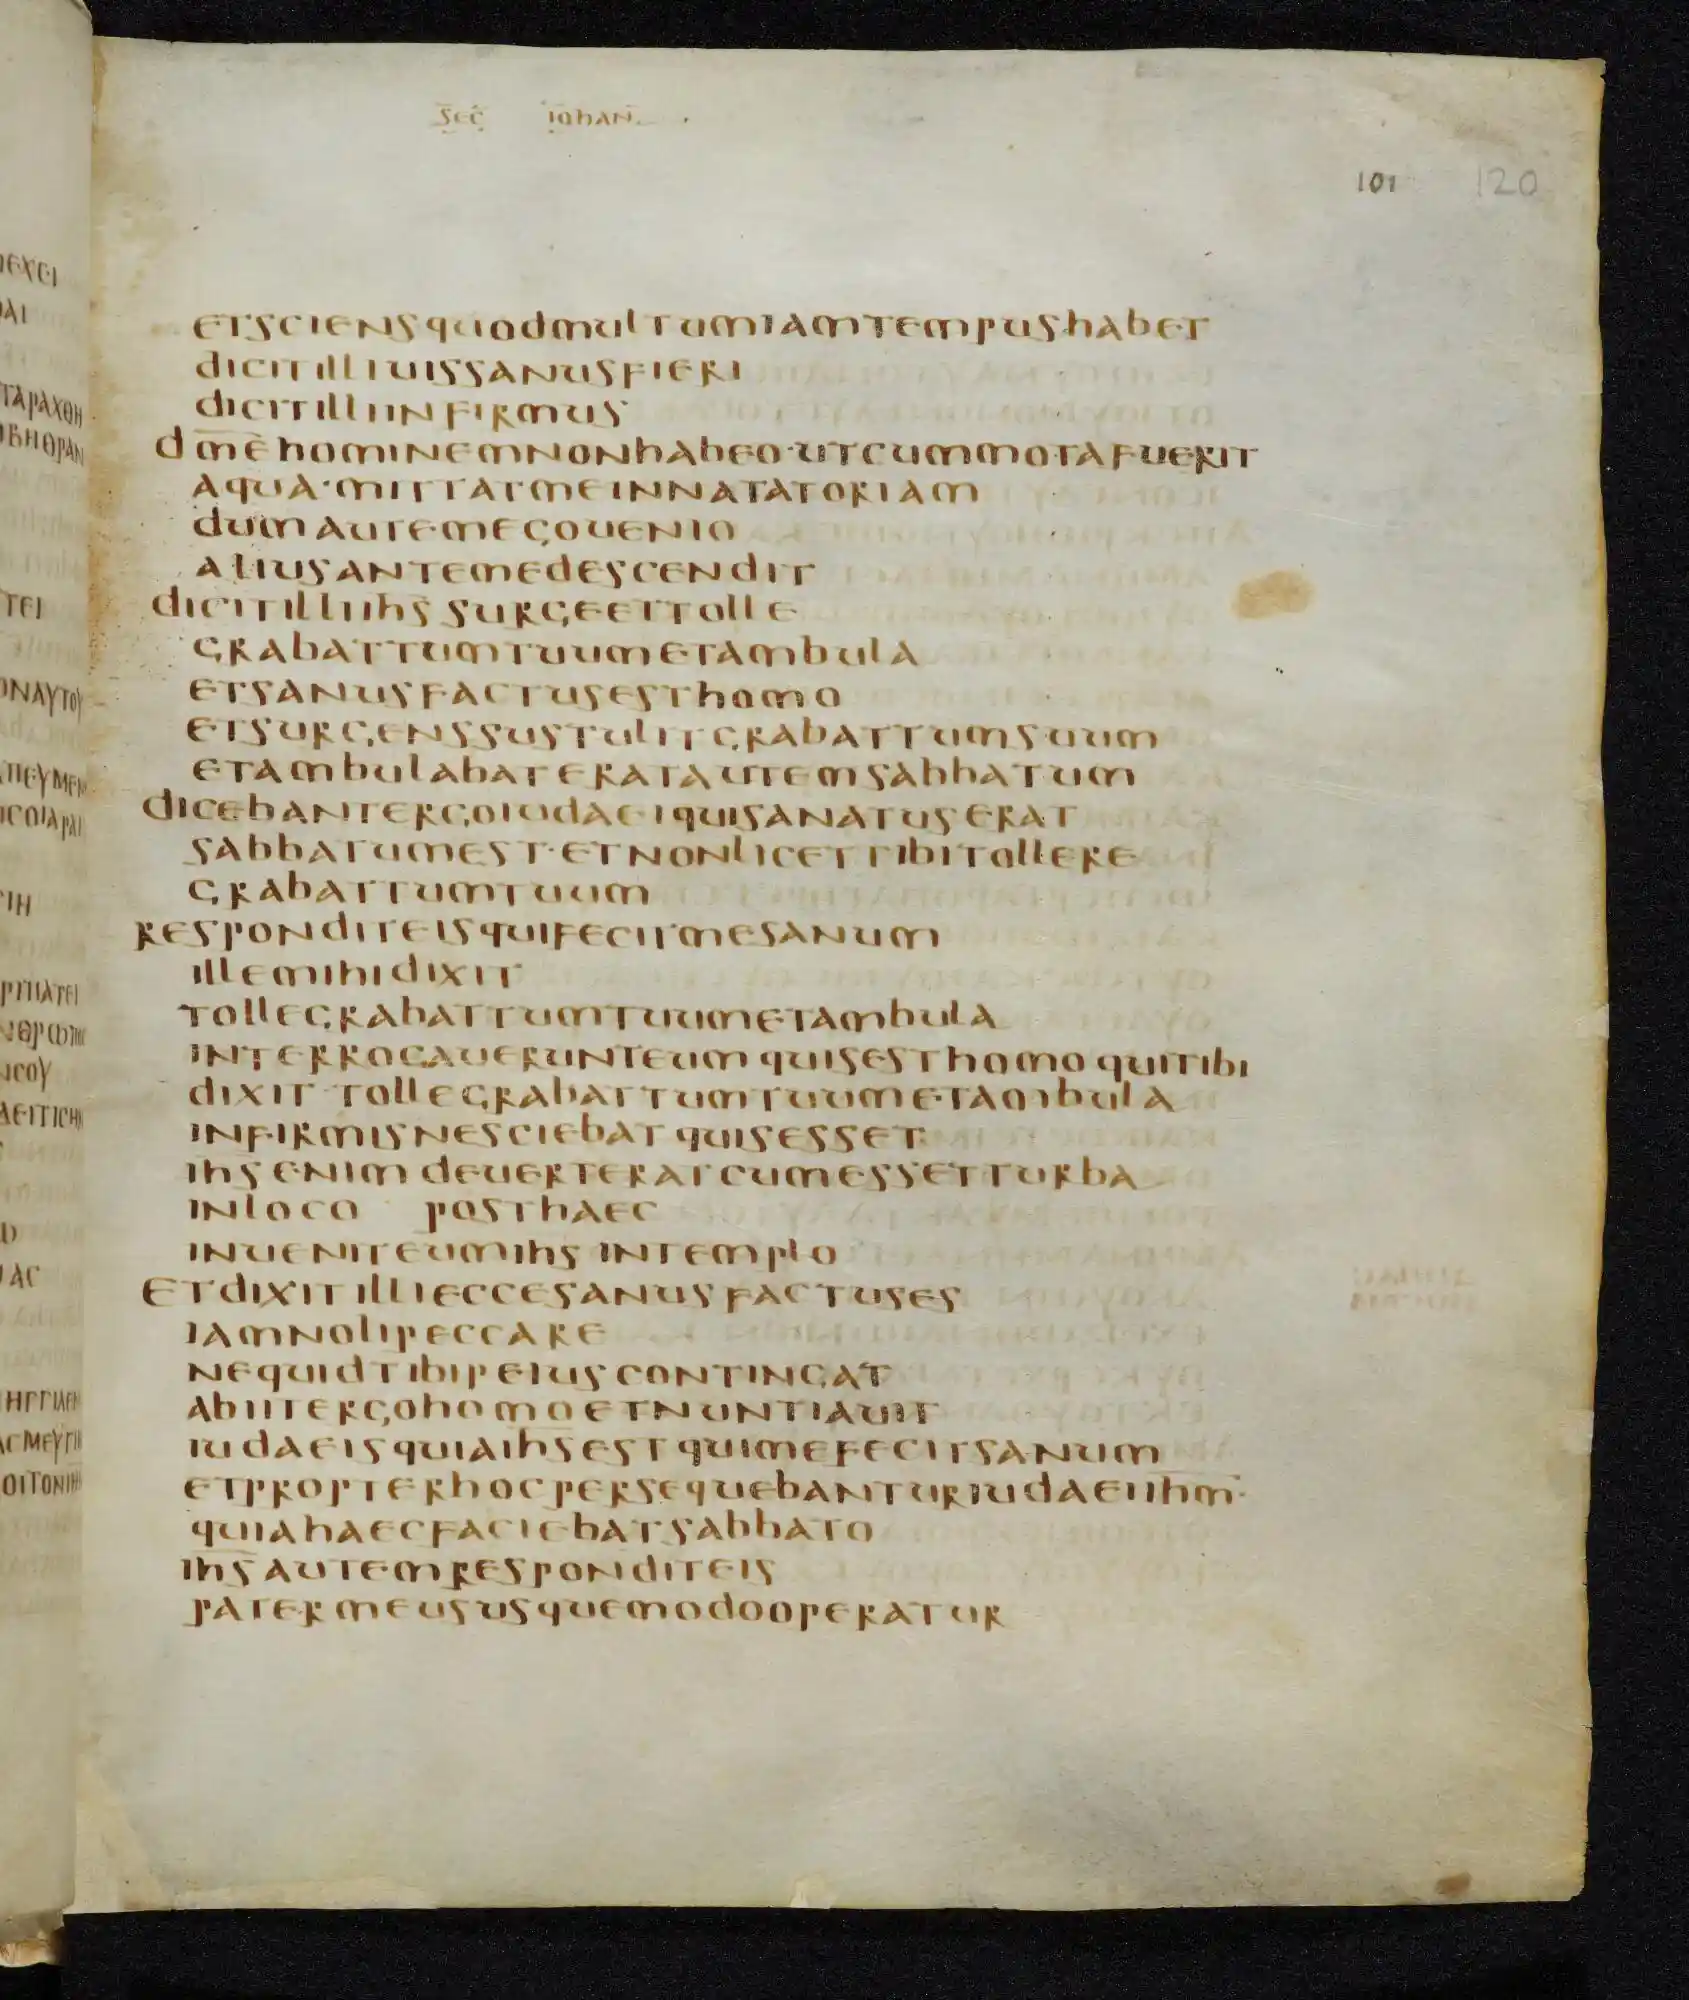 sec̅ iohan̅
101 120
etsciensquodmultumiamtempushabet
dicitilliuissanusfieri
dicitilliinfirmus
dm̅e̅hominemnonhabeo·utcummotafuerit
aqua·mittatmeinnatatoriam
dumautemegouenio
aliusantemedescendit
dicitilliihs̅ surgeettolle
grabattumtuumetambula
etsanusfactusesthomo
etsurgenssustulitgrabattumsuum
etambulabateratautemsabbatum
dicebantergoiudaeiquisanatuserat
sabbatumest·etnonlicettibitollere
grabattumtuum
responditeisquifecitmesanum
illemihidixit
tollegrabattumtuumetambula
interrogauerunteumquisesthomoquitibi
dixit·tollegrabattumtuumetambula
infirmisnesciebatquisesset
ihs enimdeuerteratcumessetturba
inloco posthaec
inueniteumihs intemplo
etdixitillieccesanusfactuses
iamnolipeccare
nequidtibipeiuscontingat
abiitergohomoetnuntiauit
iudaeisquiaihs̅estquimefecitsanum
etpropterhocpersequebanturiudaeiihm̅·
quiahaecfaciebatsabbato
ihs̅autemresponditeis
patermeususquemodooperatur